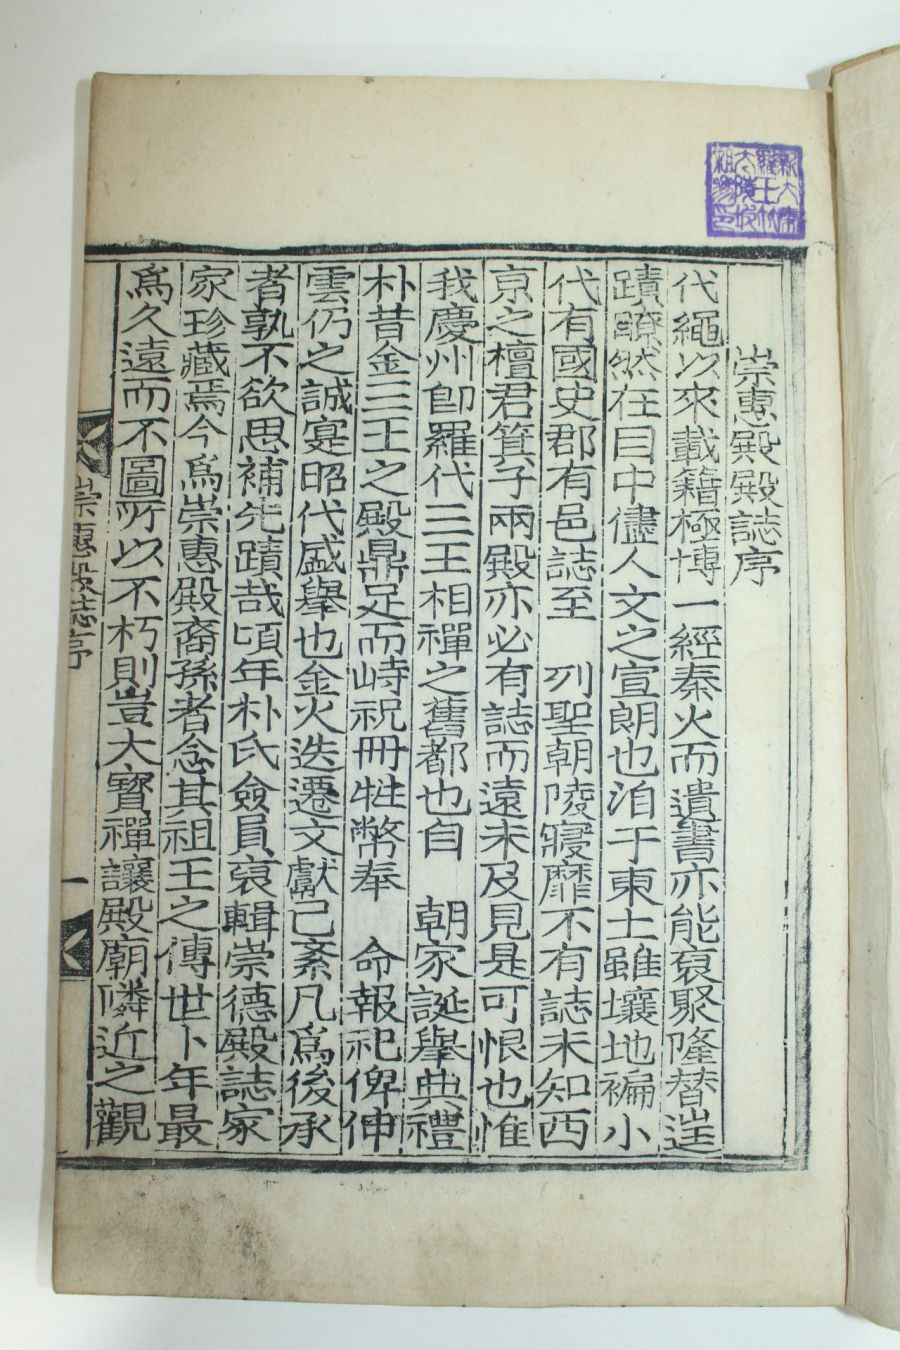 崇惠殿殿誌序
代繩以來載籍極博一經秦火而遺書亦能裒聚隆替迋
蹟瞭然在目中儘人文之宣朗也洎于東土雖壤地褊小
代有國史郡有邑誌至 列聖朝陵寢靡不有誌未知西
京之檀君箕子兩殿亦必有誌而遠未及見是可恨也惟
我慶州卽羅代三王相禪之舊都也自 朝家誕擧典禮
朴昔金三王之殿鼎足而峙祝冊牲幣奉 命報祀俾伸
雲仍之誠寔昭代盛擧也金火迭遷文獻已紊凡爲後承
者孰不欲思補先蹟哉頃年朴氏僉員裒輯崇德殿誌家
家珍藏焉今爲崇惠殿裔孫者念其祖王之傳世卜年最
爲久遠而不圖所以不朽則豈大寶禪讓殿廟隣近之觀
崇惠殿誌序
一